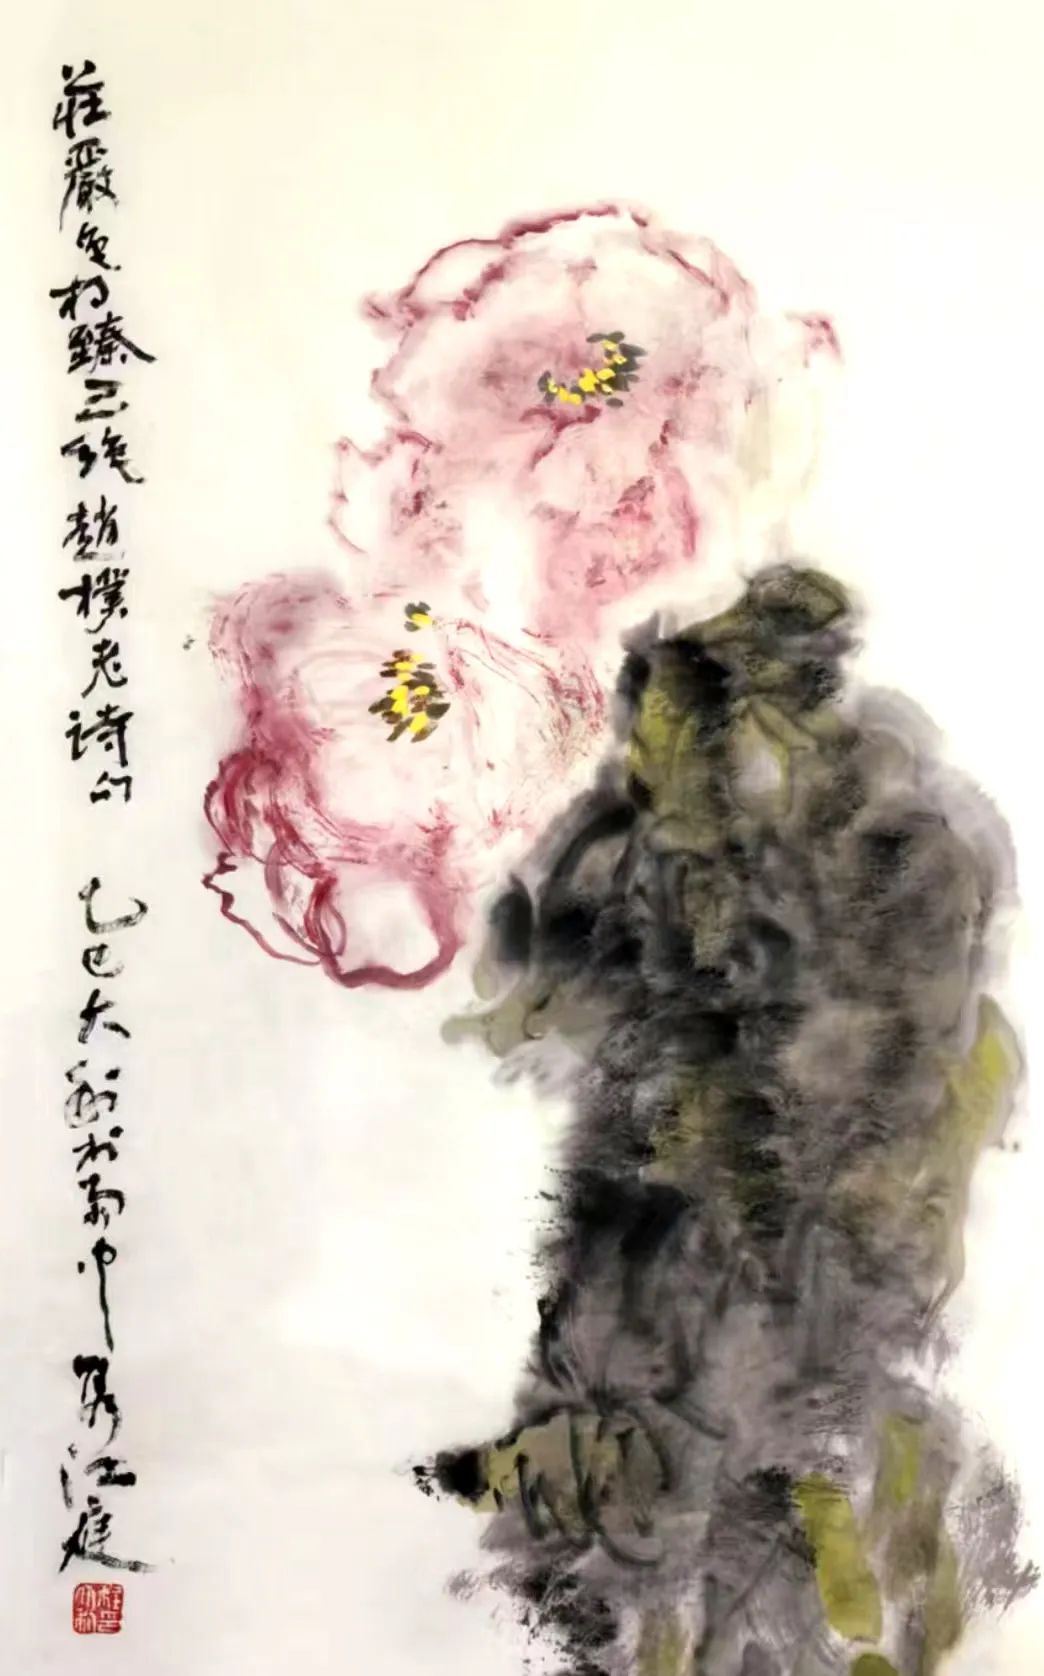 莊嚴色相臻三絕趙樸老詩句 乙巳大 於 中 江